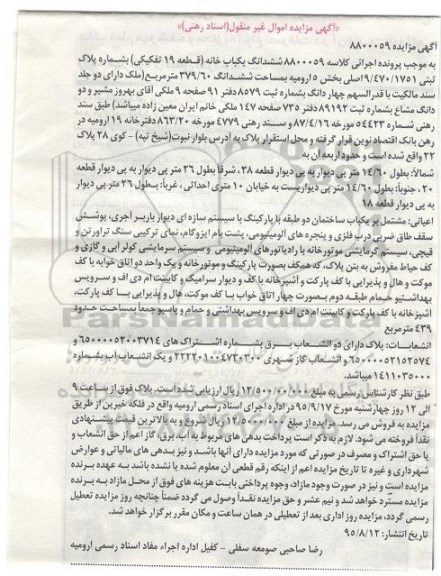 «آگهی مزایده اموال غیر منقول(اسناد رهنی)»
آگهی مزایده ۸۸۰۰۰۵۹
به موجب پرونده اجرائی کلاسه ۸۸۰۰۰۵۹ ششدانگ یکباب خانه (قطعه ۱۹ تفکیکی) بشماره پلاک
ثبتی ۹/۴۷۰/۱۷۵۱اصلی بخش ۵ ارومیه بمساحت ششدانگ ۳۷۹/۶۰ مترمربع(ملک دارای دو جلد
سند مالکیت با قدرالسهم چهار دانگ بشماره ثبت ۸۵۷۹دفتر ۹۱ صفحه ۹ ملکی آقای بهروز مشیر و دو
دانگ مشاع بشماره ثبت ۸۹۱۹۲ دفتر ۷۳۵ صفحه ۱۴۷ ملکی خانم ایران معین زاده میباشد) طبق سند
رهنی شماره ۵۴۴۲۳ مورخه ۸۷/۴/۱۶ و سند رهنی ۴۷۷۹ مورخه ۸۶/۳/۲۰دفترخانه ۱۹ ارومیه در
رهن بانک اقتصاد نوین قرار گرفته و محل استقرار پلاک به ادرس بلوار نبوت(شیخ تپه) – کوی ۲۸ پلاک
۲۲ واقع شده است و حدود اربعه آن به
شمالا: بطول ۱۴/۶۰ متر پی دیوار به پی دیوار قطعه ۳۸، شرقا بطول ۲۶ متر پی دیوار به پی دیوار قطعه
۲۰، جنوبا: بطول ۱۴/۶۰ متر پی دیواریست به خیابان ۱۰ متری احداثی ، غربا: بطول ۲۶ متر پی دیوار
به پی دیوار قطعه ۱۸
اعیانی: مشتمل بر یکباب ساختمان دو طبقه با پارکینگ با سیستم سازه ای دیوار باربر آجری، پوشش
سقف طاق ضربی درب فلزی و پنجره های آلومینیومی، پشت بام ایزوگام، نمای ترکیبی سنگ تراورتن و
قیچی، سیستم گرمایشی موتورخانه با رادیاتورهای آلومینیومی و سیستم سرمایشی کولر آبی و گازی و
کف حیاط مفروش به بتن پلاک، که همکف بصورت پارکینگ و موتورخانه و یک واحد دو اتاق خوابه با کف
موکت و هال و پذیرایی با کف پارکت و آشپزخانه با کف و دیوار سرامیک و کابینت ام دی اف و سرویس
بهداشتیو حمام طبقه دوم بصورت چهار اتاق خواب با کف موکت، هال و پذیرایی با کف پارکت،
آشپزخانه با کف پارکت و کابینت ام دی اف و سرویس بهداشتی و حمام و پاسیو جمعا بمساحت حدود
۴۳۹ مترمربع
انشعابات: پلاک دارای دو انشعاب برق بشماره اشتراک های ۶۵۰۰۰۰۵۲۰۰۳۷۱۴ و
۶۵۰۰۰۰۵۲۱۵۲۵۷۴ و انشعاب گاز شهری ۲۲۲۲۰۱۰۰۴۷۳۰۳۰۰ و یک انشعاب آب بشماره
۱۴۱۱۰۳۵۰۰۰ میباشد.
طبق نظر کارشناس رسمی به مبلغ ۱۲/۵۰۰/۰۰۰/۰۰۰ ریال ارزیابی شده است. پلاک فوق از ساعت ۹
الی ۱۲ روز چهارشنبه مورخ ۹۵/۹/۱۷ در اداره اجرای اسناد رسمی ارومیه واقع در فلکه خیرین از طریق
مزایده به فروش می رسد. مزایده از مبلغ ۱۲/۵۰۰/۰۰۰/۰۰۰ ریال شروع و به بالاترین قیمت پیشنهادی
نقدا فروخته می شود. لازم به ذکر است پرداخت بدهی های مربوط به آب، برق، گاز اعم از حق انشعاب و
یا حق اشتراک و مصرف در صورتی که مورد مزایده دارای آنها باشد و نیز بدهی های مالیاتی و عوارض
شهرداری و غیره تا تاریخ مزایده اعم از اینکه رقم قطعی آن معلوم شده یا نشده باشد به عهده برنده
مزایده است و نیز در صورت وجود مازاد، وجوه پرداختی بابت هزینه های فوق از محل مازاد به برنده
مزایده مسترد خواهد شد و نیم عشر و حق مزایده نقدا وصول می گردد ضمنا چنانچه روز مزایده تعطیل
رسمی گردد، مزایده روز اداری بعد از تعطیلی در همان ساعت و مکان مقرر برگزار خواهد شد.
تاریخ انتشار: ۹۵/۸/۱۲
رضا صاحبی صومعه سفلی – کفیل اداره اجراء مفاد اسناد رسمی ارومیه
ParsNamadData